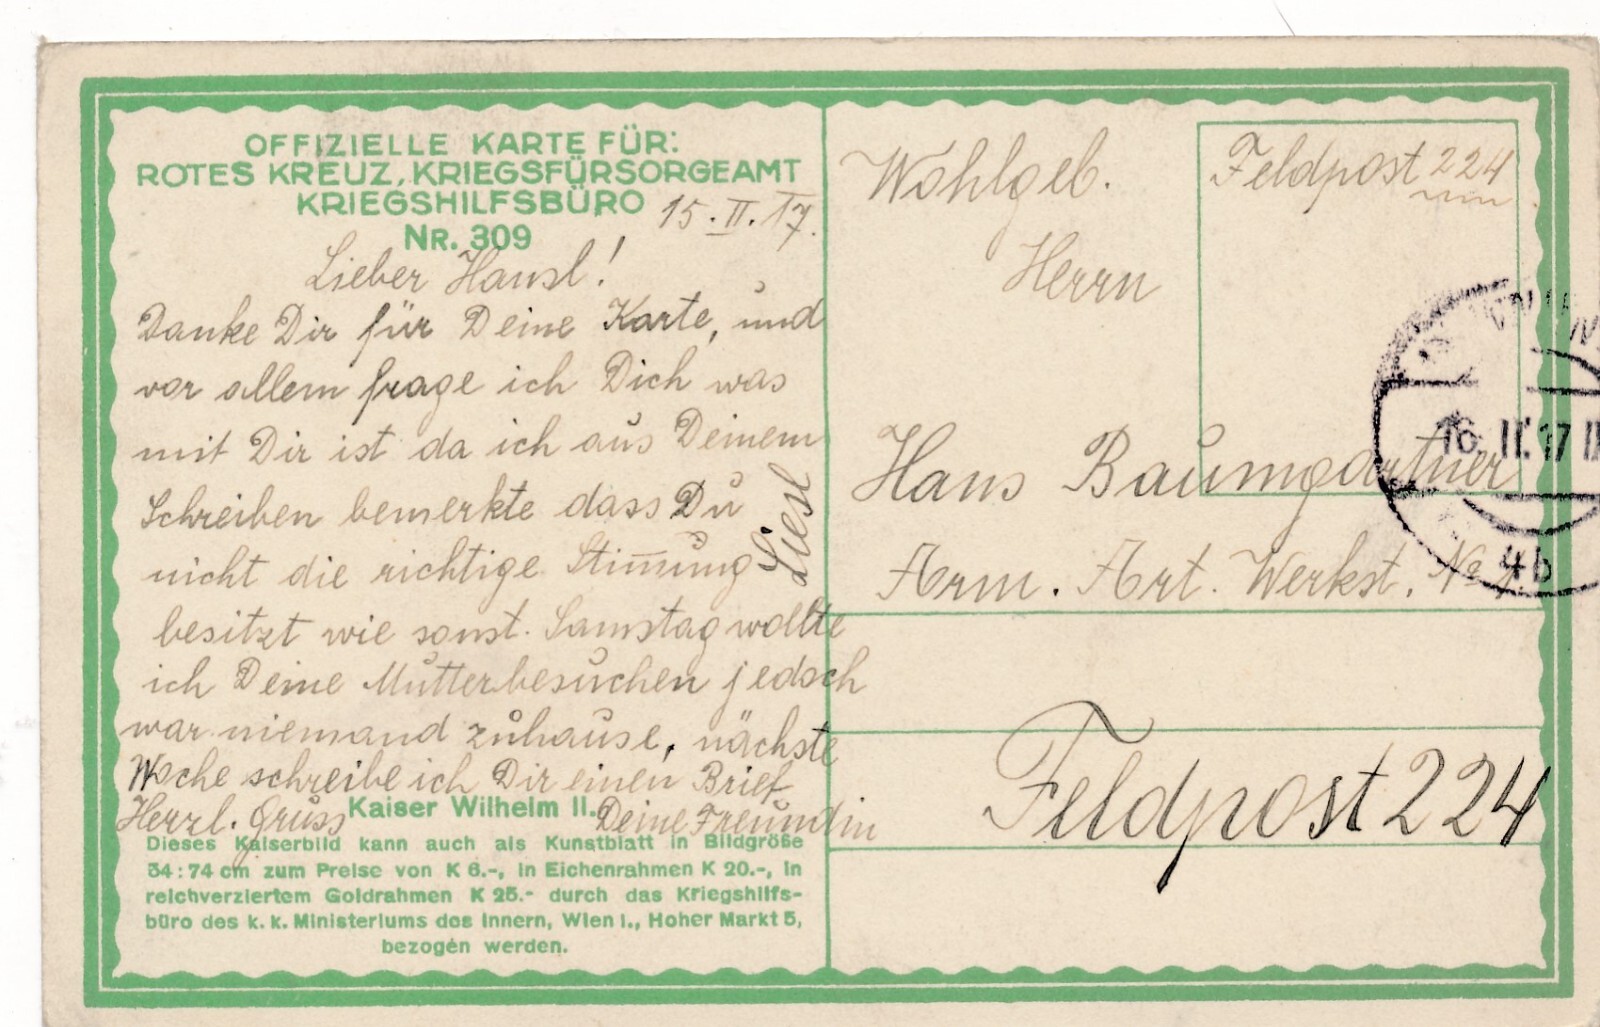 OFFIZIELLE KARTE FÜR:
ROTES KREUZ, KRIEGSFÜRSORGEAMT
KRIEGSHILFSBÜRO
Nr. 309
15.II.17.
Lieber Hansl!
Danke Dir für Deine Karte, und
vor allem frage ich Dich was
mit Dir ist da ich aus Deinem
Schreiben bemerkte dass Du
nicht die richtige Stim̅ung
besitzt wie sonst. Samstag wollte
ich Deine Mutter besuchen jedoch
war niemand zuhause, nächste
Woche schreibe ich Dir einen Brief
Herzl. Gruss Deine Freundin
Liesl
Kaiser Wilhelm II.
Dieses Kaiserbild kann auch als Kunstblatt in Bildgröße
54:74 cm zum Preise von K 6.-, in Eichenrahmen K 20.-, in
reichverziertem Goldrahmen K 25.- durch das Kriegshilfs-
büro des k. k. Ministeriums des Innern, Wien I., Hoher Markt 5,
bezogen werden.
Wohlgeb.
Feldpost 224
Herrn
Hans Baumgartner
Arm. Art. Werkst. No 1.
Feldpost 224
16.II.17
4b